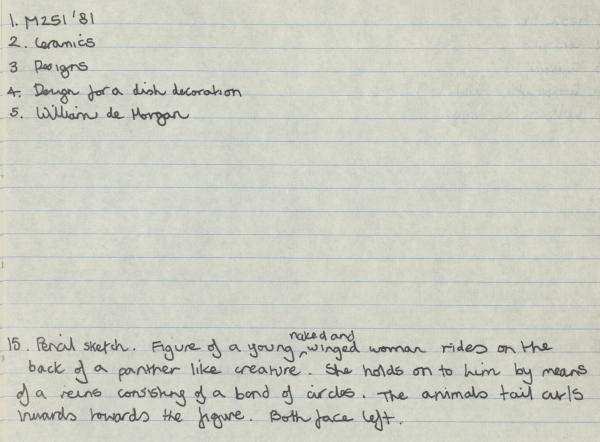 1. M251 '81
2. Ceramics
3 Designs
4. Design for a dish decoration
5. William de Morgan
15. Pencil sketch. Figure of a young naked and winged woman rides on the
back of a panther like creature. She holds on to him by means
of a reins consisting of a band of circles. The animals tail curls
inwards towards the figure. Both face left.